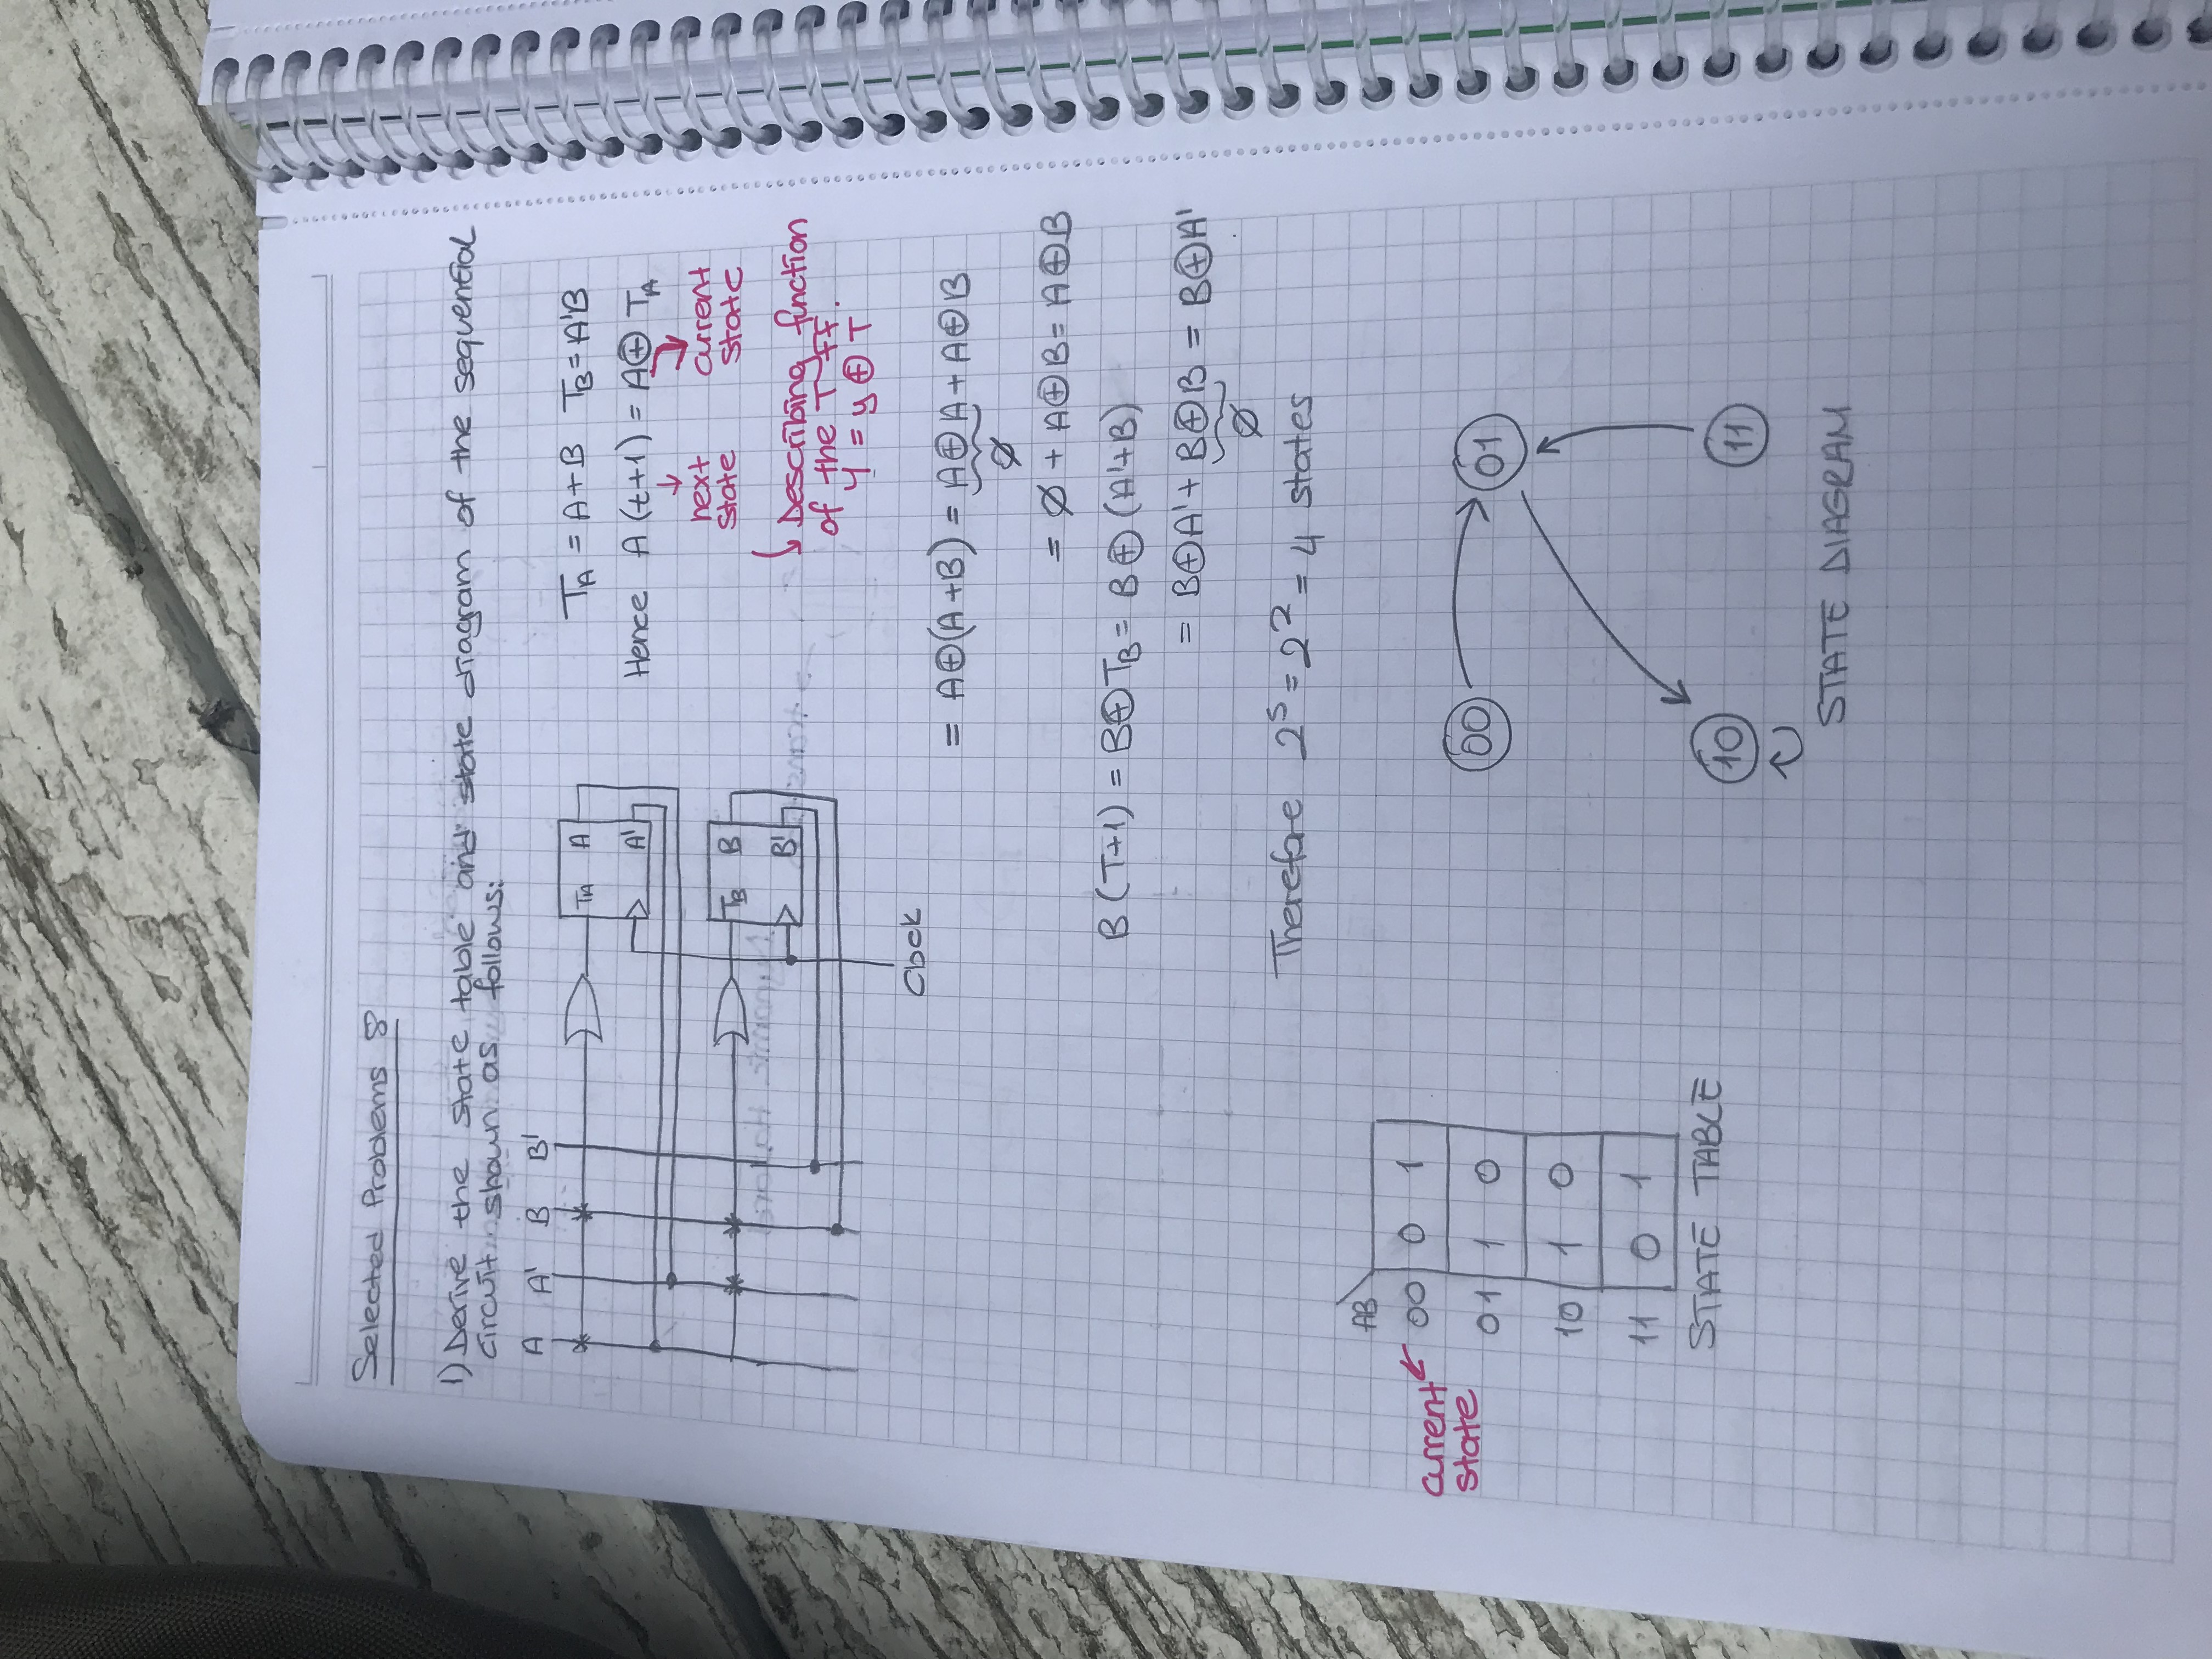 Selected Problems 8
1) Derive the state table and state diagram of the sequential
circuit shown as follows:
A A' B B'
TA A
A'
TB B
B'
Clock
TA = A+B TB = A'B
Hence A (t+1) = A⊕ TA
next
state
current
state
Describing function
of the T ff.
Y = y ⊕ T
= A⊕(A+B) = A⊕A + A⊕B
∅
= ∅ + A⊕B = A⊕B
B (T+1) = B⊕TB = B⊕ (A'+B)
= B⊕A' + B⊕B = B⊕A'
∅
Therefore 2^s = 2^2 = 4 states
AB
current
state
00 0 1
01 1 0
10 1 0
11 0 1
STATE TABLE
00 01
10 11
STATE DIAGRAM